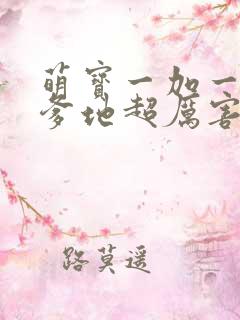 萌宝一加一
爹地超厉害
路莫遥